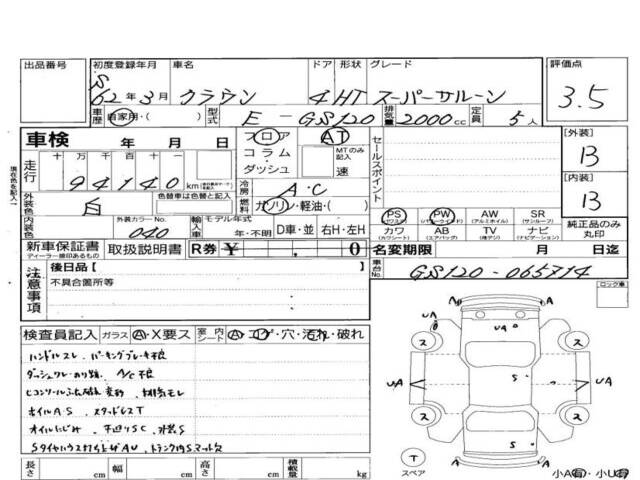 出品番号 初度登録年月 車名 ドア 形状 グレード 評価点
S
62年3月 クラウン 4 HT スーパーサルーン 3.5
車歴 自家用・( ) 型式 E-GS120 排気量 2000cc 定員 5人
車検 年 月 日 フロア AT セールスポイント [外装]
コラム・ MTのみ記入 13
走行 十万千百十 ダッシュ 速
94140km 冷房 A・C [内装]
外装色 白 色替車は色替と記入 燃料 ガソリン・軽油・( ) 13
PS PW AW SR
(パワステ) (パワーウィンド) (アルミホイル) (サンルーフ)
内装色 外装カラーNo. 040 輸入車 モデル年式 カワ AB TV ナビ 純正品のみ丸印
年・不明 D車・並 右H・左H (カワシート) (エアバッグ) (ナビゲーション)
新車保証書 取扱説明書 R券 ¥ , 0 名変期限 月 日迄
ディーラー捺印あるもの
注意事項 後日品[ ] 車台No. GS120-065714
不具合箇所等 ロック車
検査員記入 ガラス A・X要ス 室内シート A・コゲ・穴・汚れ・破れ
ハンドルスレ パーキングブレーキ不良
A/C不良
変形 排気モレ
ホイルA・S スタッドレスT
オイルにじみ 下廻りSC 外装S
トランク内Sマット欠
UA UA A
ス ス
S
UA UA
ス ス
S
A A
T
スペア
長さ cm 幅 cm 高さ cm 積載量 kg 小A有・小U有